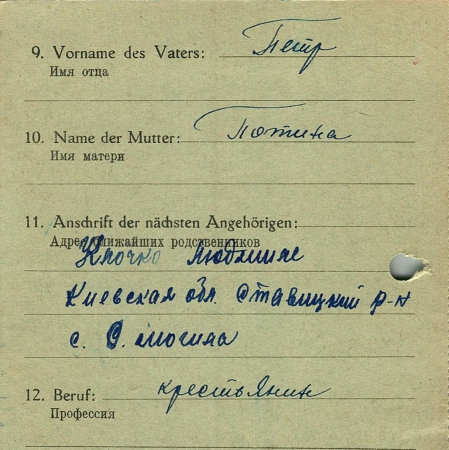 9. Vorname des Vaters: Петр
Имя отца
10. Name der Mutter: Потина
Имя матери
11. Anschrift der nächsten Angehörigen:
Адрес ближайших родственников
Клочко Людмиле
Киевская обл. Ставицкий р-н
с. С. могила
12. Beruf: крестьянин
Профессия